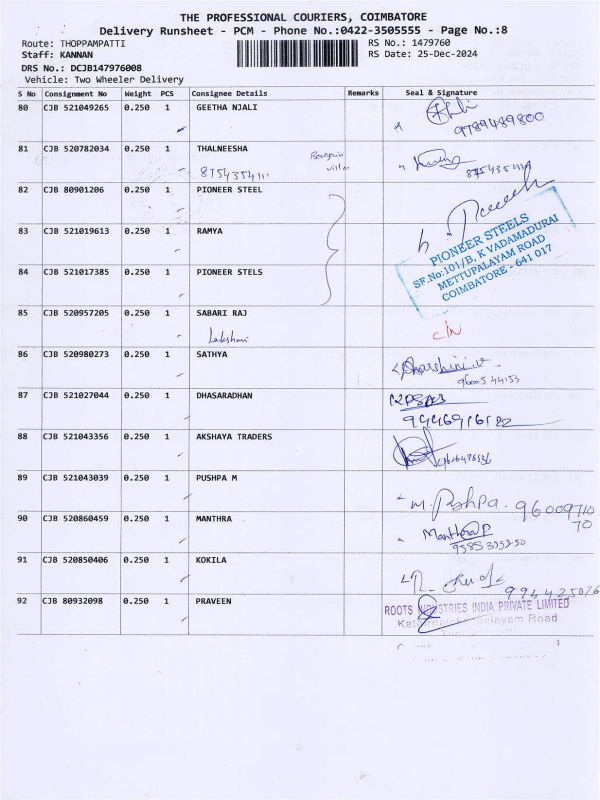 THE PROFESSIONAL COURIERS, COIMBATORE
Delivery Runsheet - PCM - Phone No.:0422-3505555 - Page No.:8
Route: THOPPAMPATTI
RS No.: 1479760
Staff: KANNAN
RS Date: 25-Dec-2024
DRS No.: DCJB147976008
Vehicle: Two Wheeler Delivery
S No Consignment No Weight PCS Consignee Details Remarks Seal & Signature
80 CJB 521049265 0.250 1 GEETHA NJALI
9789489800
81 CJB 520782034 0.250 1 THALNEESHA
8754354111
82 CJB 80901206 0.250 1 PIONEER STEEL
83 CJB 521019613 0.250 1 RAMYA
PIONEER STEELS
SF.No:101/B, K VADAMADURAI
METTUPALAYAM ROAD
COIMBATORE - 641 017
84 CJB 521017385 0.250 1 PIONEER STELS
85 CJB 520957205 0.250 1 SABARI RAJ
Lakshmi
86 CJB 520980273 0.250 1 SATHYA
Dharshini.v
87 CJB 521027044 0.250 1 DHASARADHAN
88 CJB 521043356 0.250 1 AKSHAYA TRADERS
89 CJB 521043039 0.250 1 PUSHPA M
M. Pushpa. 96009710
70
90 CJB 520860459 0.250 1 MANTHRA
Manthra P
91 CJB 520850406 0.250 1 KOKILA
92 CJB 80932098 0.250 1 PRAVEEN
ROOTS INDUSTRIES INDIA PRIVATE LIMITED
Road